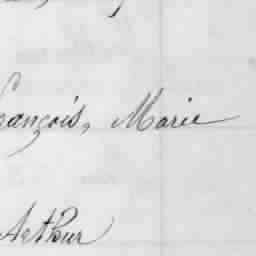 François, Marie
Arthur